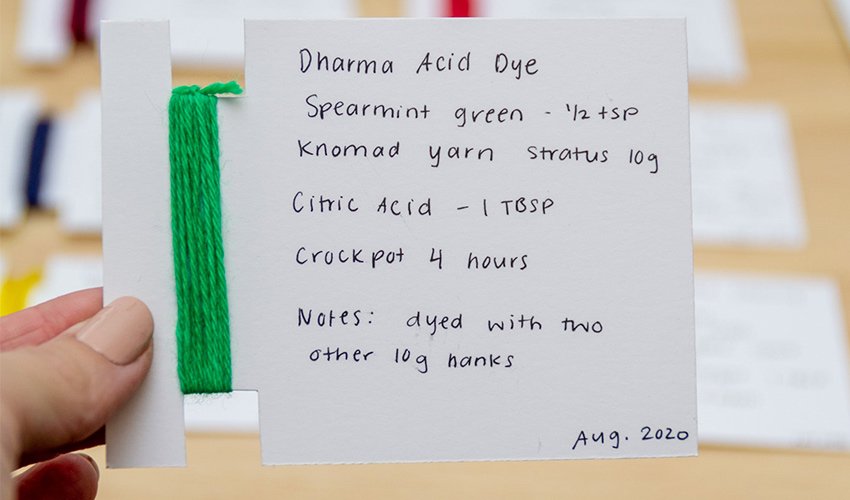 Dharma Acid Dye
Spearmint green - 1/2 tsp
Knomad yarn Stratus 10g
Citric Acid - 1 TBSP
Crockpot 4 hours
Notes: dyed with two
other 10g hanks
Aug. 2020